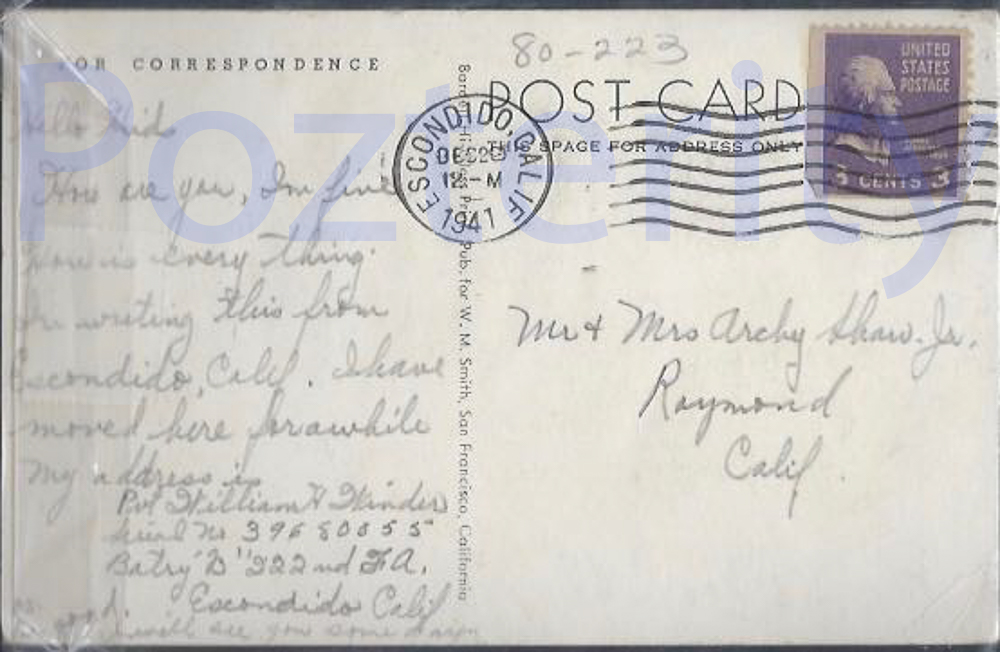 80-223
FOR CORRESPONDENCE
POST CARD
THIS SPACE FOR ADDRESS ONLY
ESCONDIDO, CALIF.
DEC 2
12 - M
1941
UNITED
STATES
POSTAGE
3 CENTS 3
Hello Kid
How are you, Im fine
How is every thing.
Im writing this from
Escondido, Calif. I have
moved here forawhile
My address is
Pvt William H Winder
Serial No 39680055
Batry "B" 222nd F A.
Escondido Calif
will see you some
Pub. for W. M. Smith, San Francisco, California
Mr & Mrs Archy Shaw. Jr.
Raymond
Calif.
Pozterity